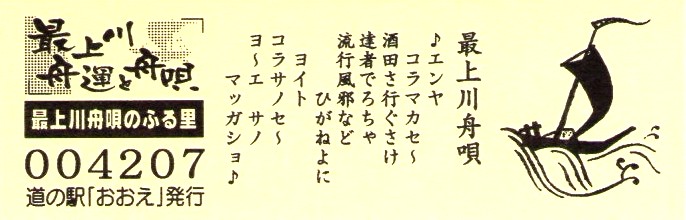 最上川
舟運と舟唄
最上川舟唄のふる里
004207
道の駅「おおえ」発行
最上川舟唄
♪エンヤ
コラマカセ～
酒田さ行ぐさけ
達者でろちゃ
流行風邪など
ひがねよに
ヨイト
コラサノセ～
ヨ～エ サノ
マッガショ♪